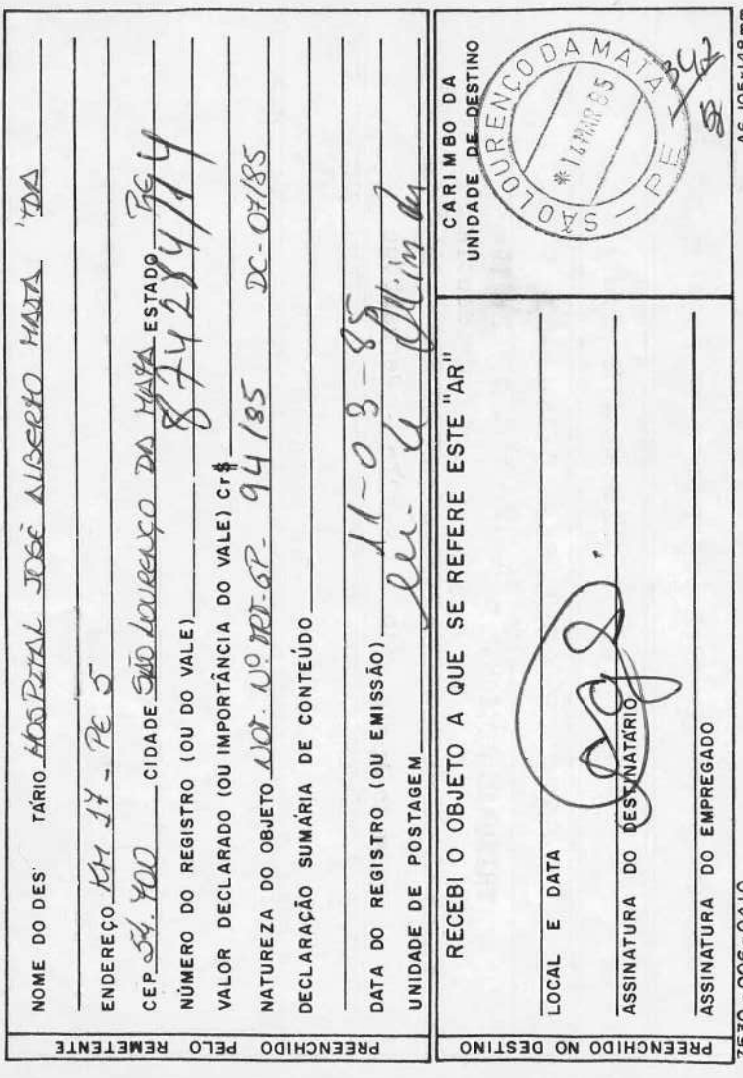 PREENCHIDO PELO REMETENTE
NOME DO DES' TÁRIO HOSPITAL JOSÉ ALBERTO MAIA 'TDA
ENDEREÇO KM 17 - PE 5
CEP 54.700 CIDADE SÃO LOURENÇO DA MATA ESTADO PE
NÚMERO DO REGISTRO (OU DO VALE) 874284/14
VALOR DECLARADO (OU IMPORTÂNCIA DO VALE) Cr$
NATUREZA DO OBJETO NOT. Nº DRT-GP- 94/85 DC-07/85
DECLARAÇÃO SUMÁRIA DE CONTEÚDO
DATA DO REGISTRO (OU EMISSÃO) 11-03-85
UNIDADE DE POSTAGEM
PREENCHIDO NO DESTINO
RECEBI O OBJETO A QUE SE REFERE ESTE "AR"
LOCAL E DATA
ASSINATURA DO DESTINATÁRIO
ASSINATURA DO EMPREGADO
CARIMBO DA
UNIDADE DE DESTINO
SÃO LOURENÇO DA MATA - PE
*14 MAR 85
347
7530-006-0410
A6 105x148mm